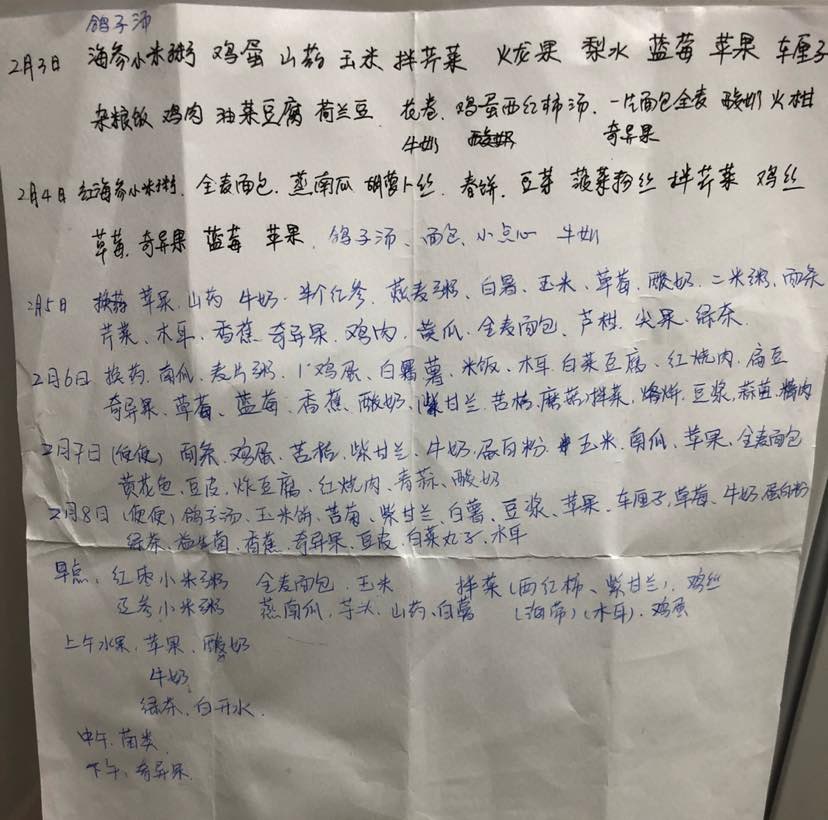 鸽子汤
2月3日 海参小米粥 鸡蛋 山药 玉米 拌芹菜 火龙果 梨水 蓝莓 苹果 车厘子
杂粮饭 鸡肉 油菜豆腐 荷兰豆 花卷. 鸡蛋西红柿汤. 一片面包全麦 酸奶 火柑
牛奶 奇异果
2月4日 红海参小米粥. 全麦面包. 蒸南瓜 胡萝卜丝. 春饼. 豆芽 菠菜粉丝 拌芹菜 鸡丝
草莓. 奇异果 蓝莓 苹果. 鸽子汤、面包、小点心 牛奶
2月5日 换药 苹果. 山药 牛奶. 半个红参. 燕麦粥、白薯、玉米、草莓、酸奶. 二米粥. 面条
芹菜、木耳、香蕉 奇异果、鸡肉. 黄瓜. 全麦面包、芦柑. 尖果. 绿茶.
2月6日 换药. 南瓜. 麦片粥. 1个鸡蛋、白薯、米饭、木耳. 白菜豆腐、红烧肉. 扁豆
奇异果、草莓、蓝莓、香蕉、酸奶.(紫甘兰. 苦桔. 蘑菇)拌菜. 烙饼. 豆浆. 蒜苗. 精肉
2月7日 (便便) 面条. 鸡蛋、苦桔、紫甘兰、牛奶. 蛋白粉. 玉米. 南瓜、苹果、全麦面包
黄花鱼. 豆皮、炸豆腐、红烧肉、青蒜、酸奶
2月8日 (便便) 鸽子汤、玉米饼. 苦菊、紫甘兰. 白薯、豆浆、苹果、车厘子, 草莓、牛奶. 蛋白粉
绿茶、益生菌、香蕉、奇异果、豆皮、白菜丸子、木耳
早点: 红枣小米粥 全麦面包. 玉米 拌菜(西红柿、紫甘兰). 鸡丝
辽参小米粥 蒸南瓜、芋头、山药、白薯 (海带)(木耳). 鸡蛋
上午水果. 苹果、酸奶
牛奶
绿茶、白开水.
中午. 菌类.
下午: 奇异果.